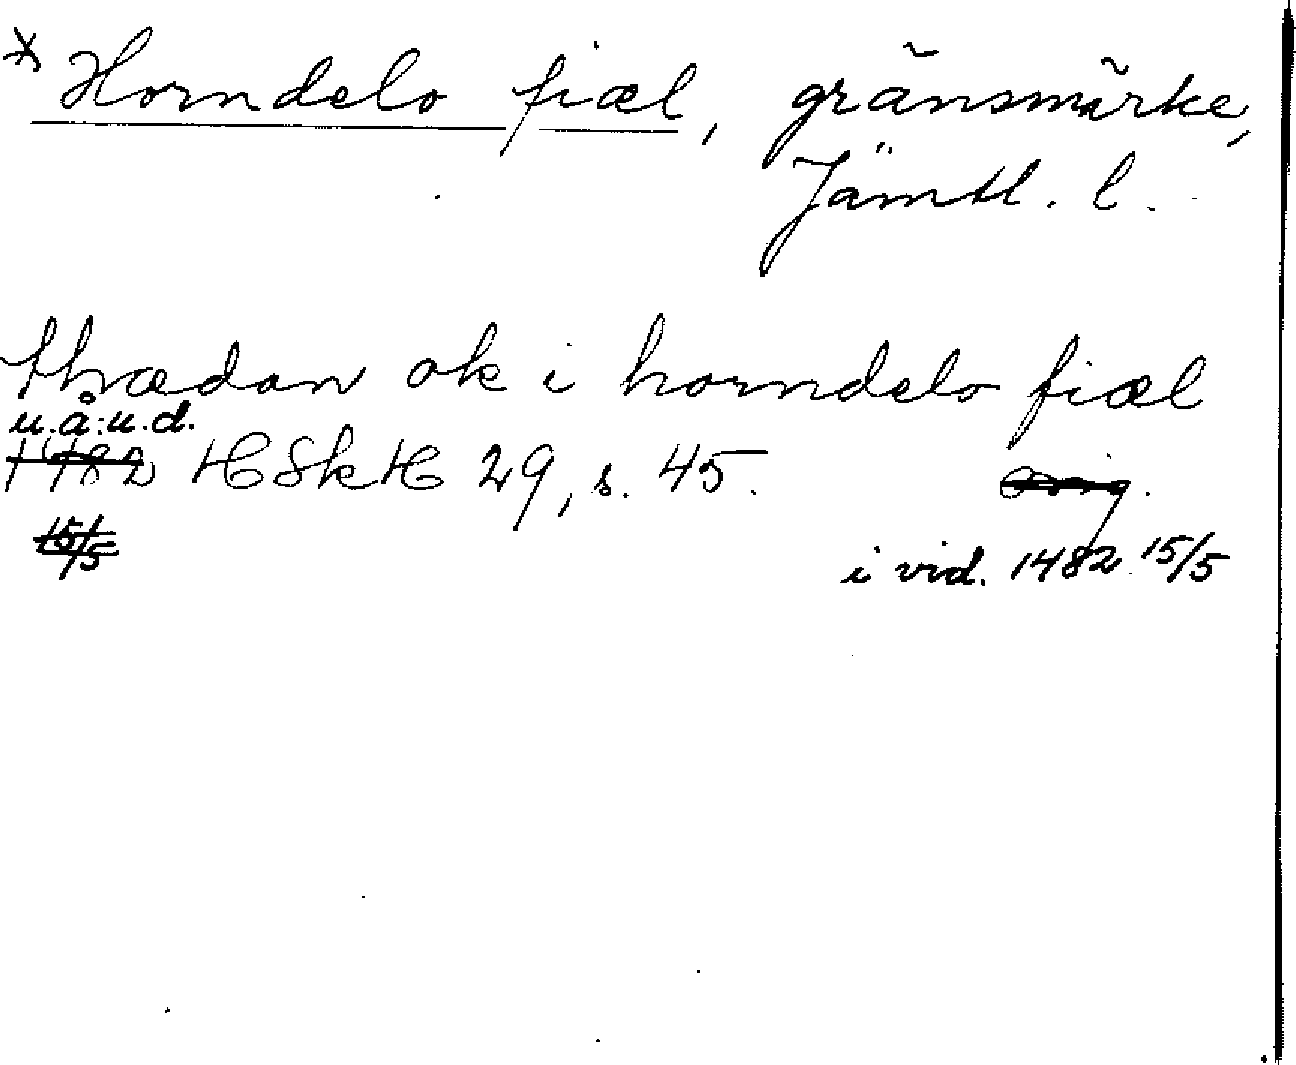 * Horndelo fiæl, gränsmärke,
Jämtl. l.
thædan ok i horndelo fiæl
u.å.u.d.
1482 HSkH 29, s. 45. orig.
15/5
i vid. 1482 15/5